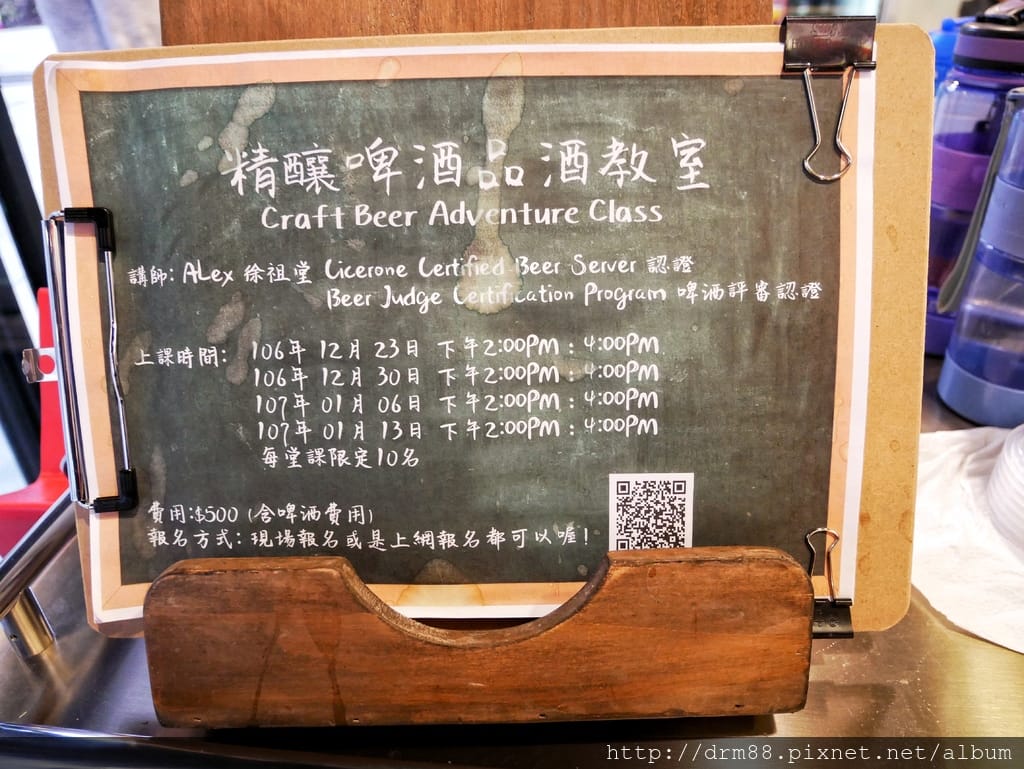 精釀啤酒品酒教室
Craft Beer Adventure Class
講師: ALex 徐祖堂 Cicerone Certified Beer Server 認證
Beer Judge Certification Program 啤酒評審認證
上課時間: 106年 12月 23日 下午2:00PM : 4:00PM
106年 12月 30日 下午2:00PM : 4:00PM
107年 01月 06日 下午2:00PM : 4:00PM
107年 01月 13日 下午2:00PM : 4:00PM
每堂課限定10名
費用:$500 (含啤酒費用)
報名方式: 現場報名或是上網報名都可以喔!
http://drm88.pixnet.net/album